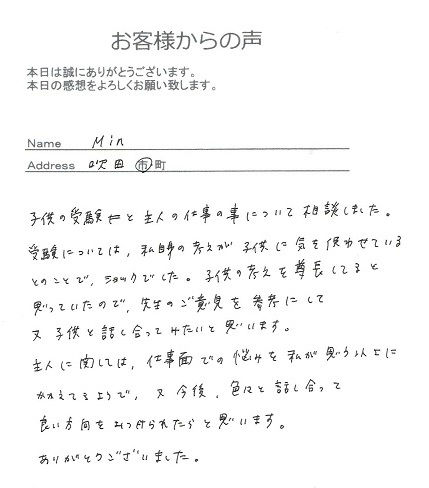 お客様からの声
本日は誠にありがとうございます。
本日の感想をよろしくお願い致します。
Name Min
Address 吹田 市・町
子供の受験と主人の仕事の事について相談しました。
受験については、私自身の考えが子供に気を使わせている
とのことで、ショックでした。子供の考えを尊長してると
思っていたので、先生のご意見を参考にして
又子供と話し合ってみたいと思います。
主人に関しては、仕事面での悩みを私が思う以上に
かかえてるようで、又今後、色々と話し合って
良い方向をみつけられたらと思います。
ありがとうございました。